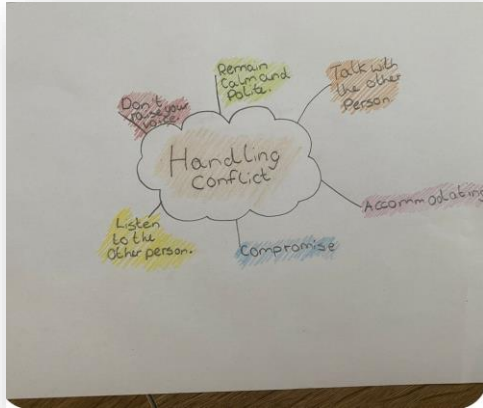 Handling
Conflict
Don't
raise your
voice.
Remain
Calm and
Polite.
Talk with
the other
Person
Accommodating
Compromise
Listen
to the
Other person.